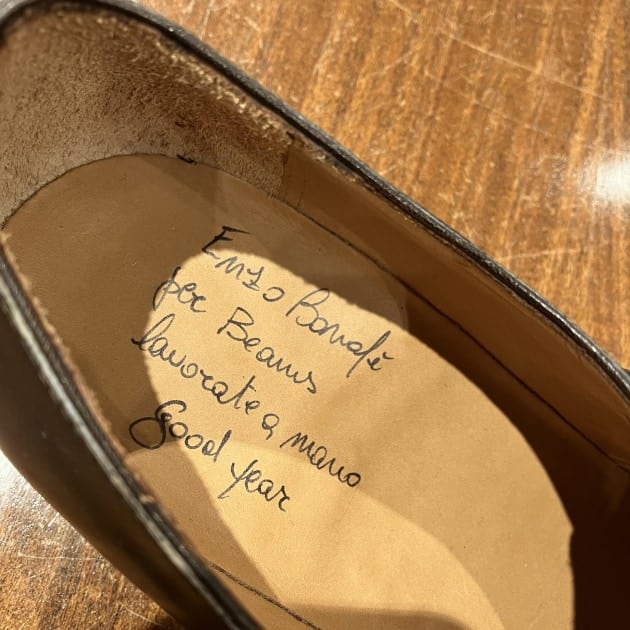 Enzo Bonafè
per Beams
lavorate a mano
Good year